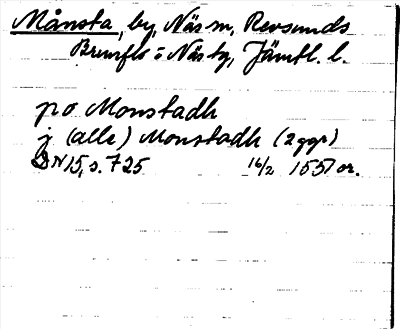 Månsta, by, Näs sn, Revsunds
Brunflo o Näs tg, Jämtl. l.
po Monstadh
j (alle) Monstadh (2 ggr)
DN 15, s. 725 16/2 1551 or.